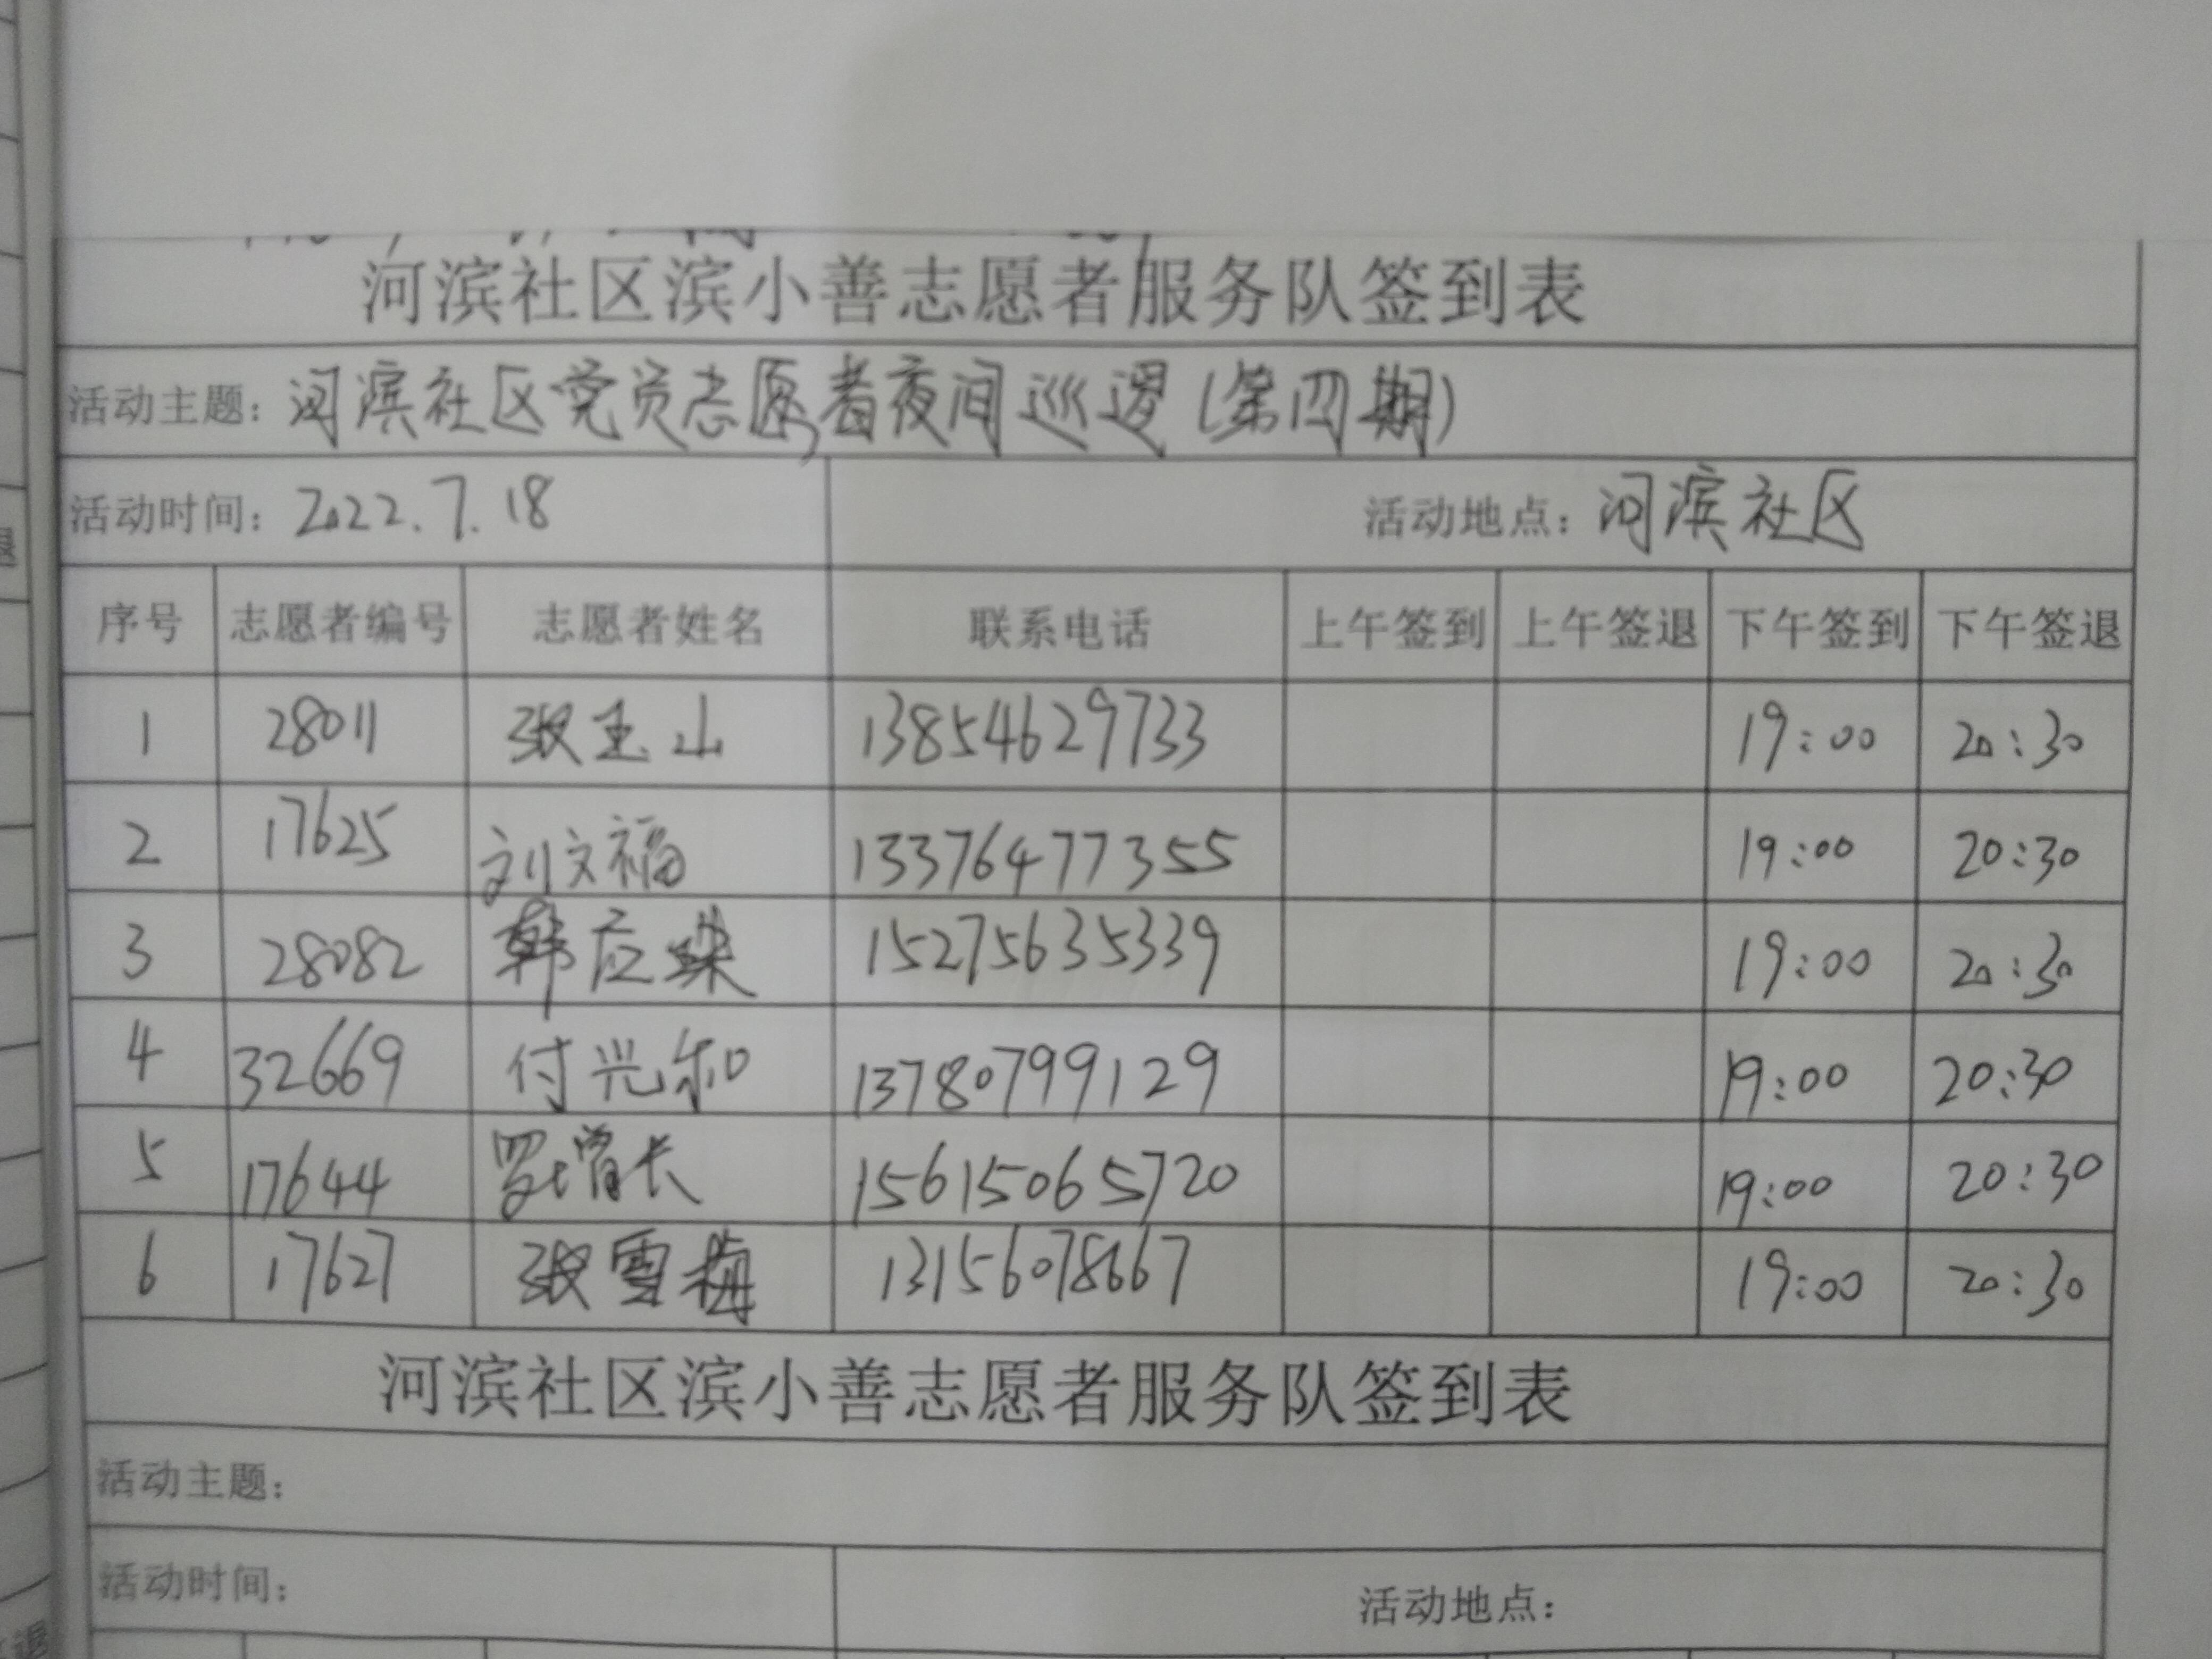 河滨社区滨小善志愿者服务队签到表
活动主题：河滨社区党员志愿者夜间巡逻（第四期）
活动时间：2022.7.18 活动地点：河滨社区
序号 志愿者编号 志愿者姓名 联系电话 上午签到 上午签退 下午签到 下午签退
1 28011 张玉山 13854629733 19:00 20:30
2 17625 刘文福 13376477355 19:00 20:30
3 28082 韩应珠 15275635339 19:00 20:30
4 32669 付兴和 13780799129 19:00 20:30
5 17644 罗增长 15615065720 19:00 20:30
6 17627 张雪梅 13156078667 19:00 20:30
河滨社区滨小善志愿者服务队签到表
活动主题：
活动时间： 活动地点：